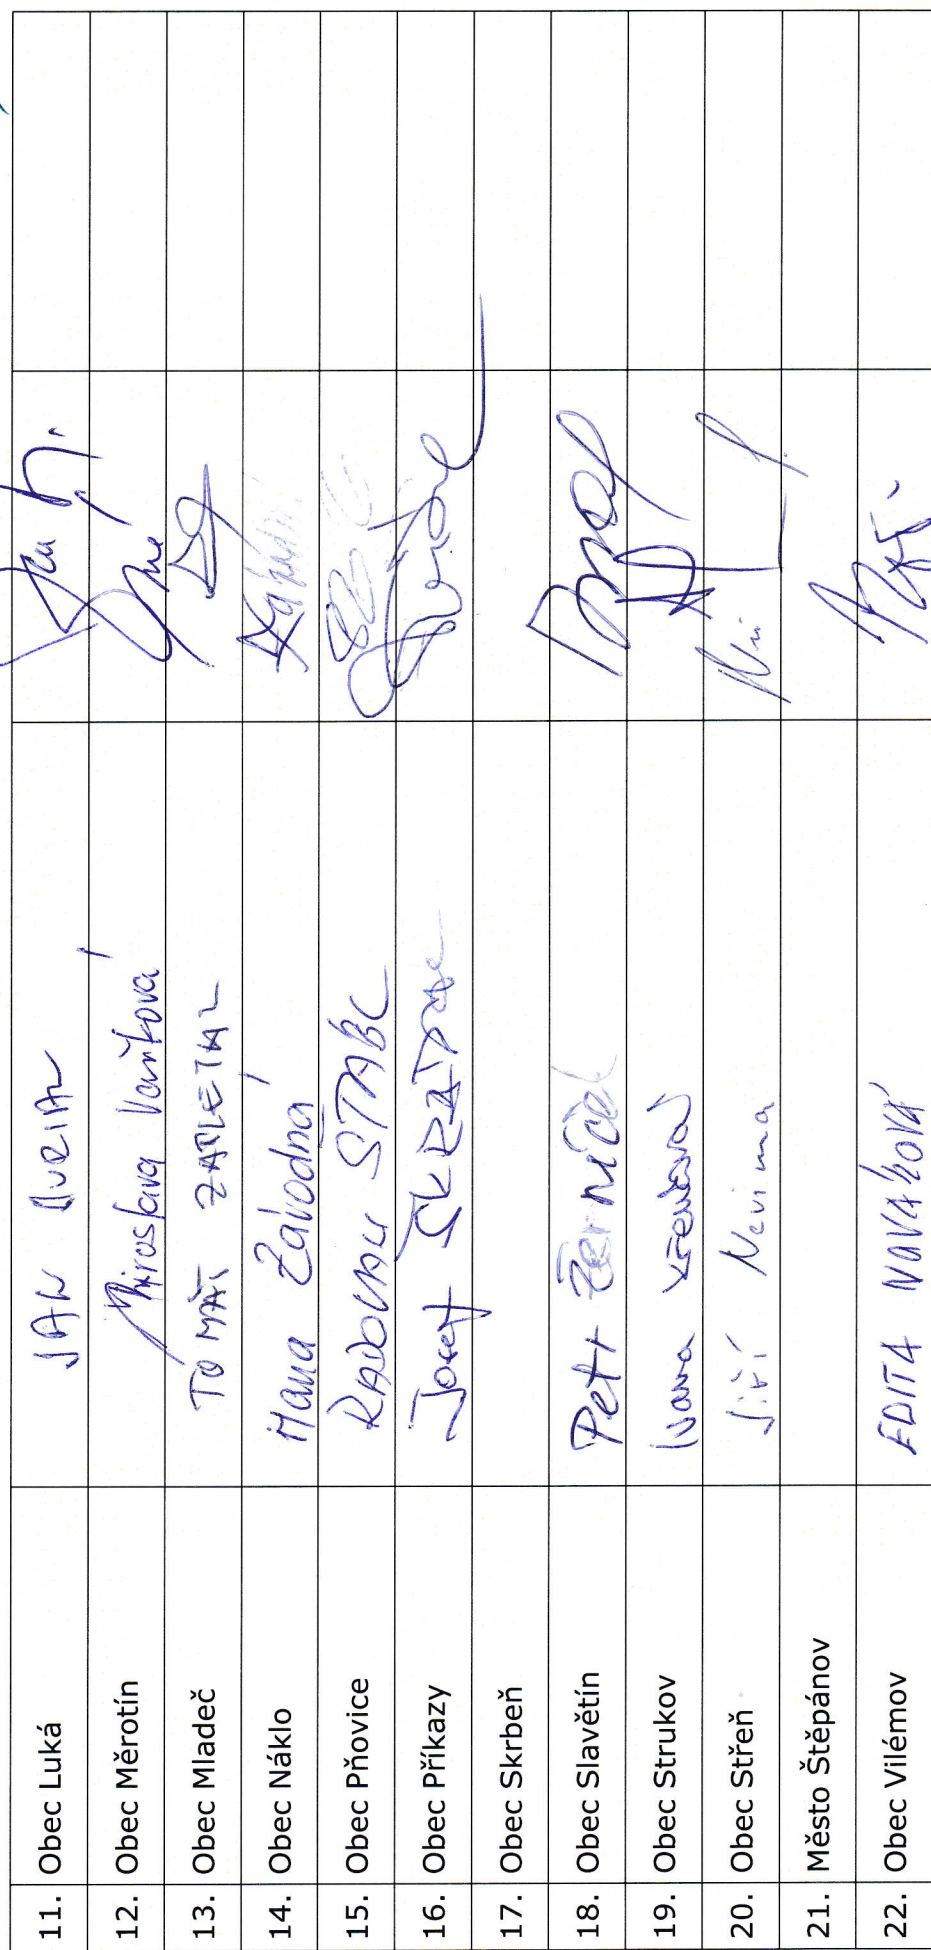 11. Obec Luká JAN BURIAN
12. Obec Měrotín Miroslava Vaňková
13. Obec Mladeč TOMÁŠ ZAPLETAL
14. Obec Náklo Hana Závodná
15. Obec Pňovice RADOVAN ŠTÁBL
16. Obec Příkazy Josef
17. Obec Skrbeň
18. Obec Slavětín Petr Žerníček
19. Obec Strukov Ivana Křenková
20. Obec Střeň Jiří Nevima
21. Město Štěpánov
22. Obec Vilémov EDITA NOVÁKOVÁ